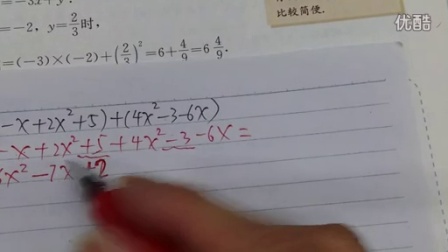 =-3x+y².
=-2，y=2/3时，
=(-3)×(-2)+(2/3)²=6+4/9=6 4/9.
比较简便.
优酷
-x+2x²+5)+(4x²-3-6x)
-x+2x²+5+4x²-3-6x=
6x²-7x+2